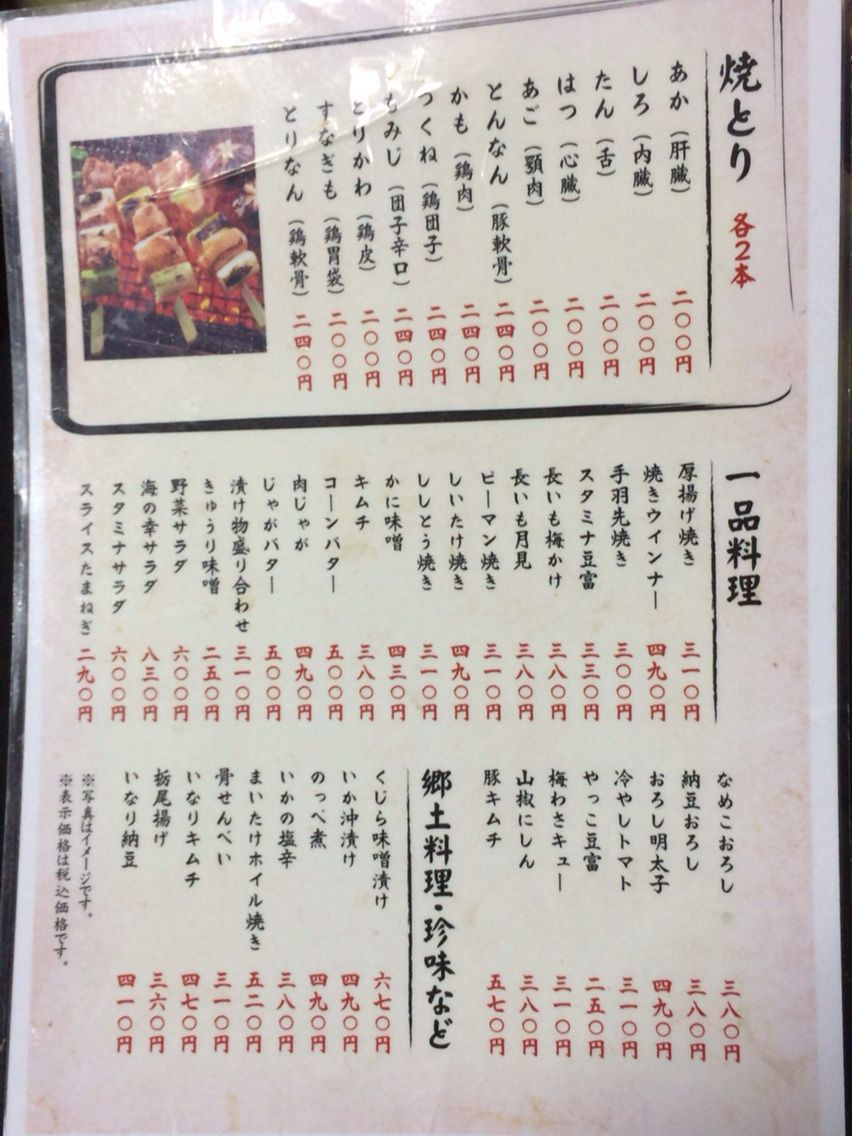 焼とり 各2本
あか（肝臓） 二〇〇円
しろ（内臓） 二〇〇円
たん（舌） 二〇〇円
はつ（心臓） 二〇〇円
あご（顎肉） 二〇〇円
とんなん（豚軟骨） 二四〇円
かも（鶏肉） 二四〇円
つくね（鶏団子） 二四〇円
もみじ（団子辛口） 二四〇円
とりかわ（鶏皮） 二〇〇円
すなぎも（鶏胃袋） 二〇〇円
とりなん（鶏軟骨） 二四〇円
一品料理
厚揚げ焼き 三一〇円
焼きウインナー 四九〇円
手羽先焼き 三〇〇円
スタミナ豆富 三三〇円
長いも梅かけ 三八〇円
長いも月見 三八〇円
ピーマン焼き 三一〇円
しいたけ焼き 四九〇円
ししとう焼き 三一〇円
かに味噌 四三〇円
キムチ 三八〇円
コーンバター 五〇〇円
肉じゃが 四九〇円
じゃがバター 五〇〇円
漬け物盛り合わせ 三一〇円
きゅうり味噌 二五〇円
野菜サラダ 六〇〇円
海の幸サラダ 八三〇円
スタミナサラダ 六〇〇円
スライスたまねぎ 二九〇円
なめこおろし 三八〇円
納豆おろし 三八〇円
おろし明太子 四九〇円
冷やしトマト 三一〇円
やっこ豆富 二五〇円
梅わさキュー 三一〇円
山椒にしん 三八〇円
豚キムチ 五七〇円
郷土料理・珍味など
くじら味噌漬け 六七〇円
いか沖漬け 四九〇円
のっぺ煮 四九〇円
いかの塩辛 三八〇円
まいたけホイル焼き 五二〇円
骨せんべい 三一〇円
いなりキムチ 四七〇円
栃尾揚げ 三六〇円
いなり納豆 四一〇円
※写真はイメージです。
※表示価格は税込価格です。